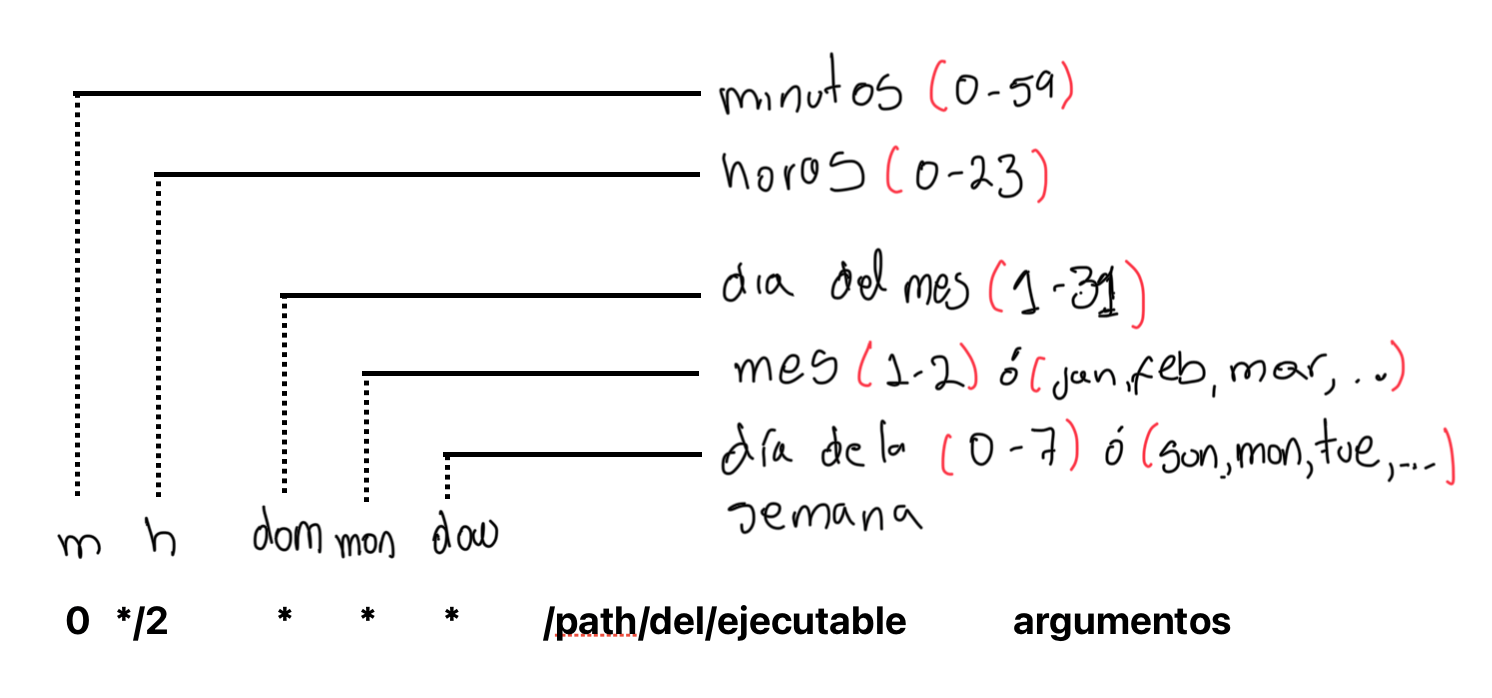 minutos (0-59)
horas (0-23)
dia del mes (1-31)
mes (1-2) ó (jan, feb, mar, ...)
día de la (0-7) ó (sun, mon, tue, ...)
semana
m h dom mon dow
0 */2 * * * /path/del/ejecutable argumentos